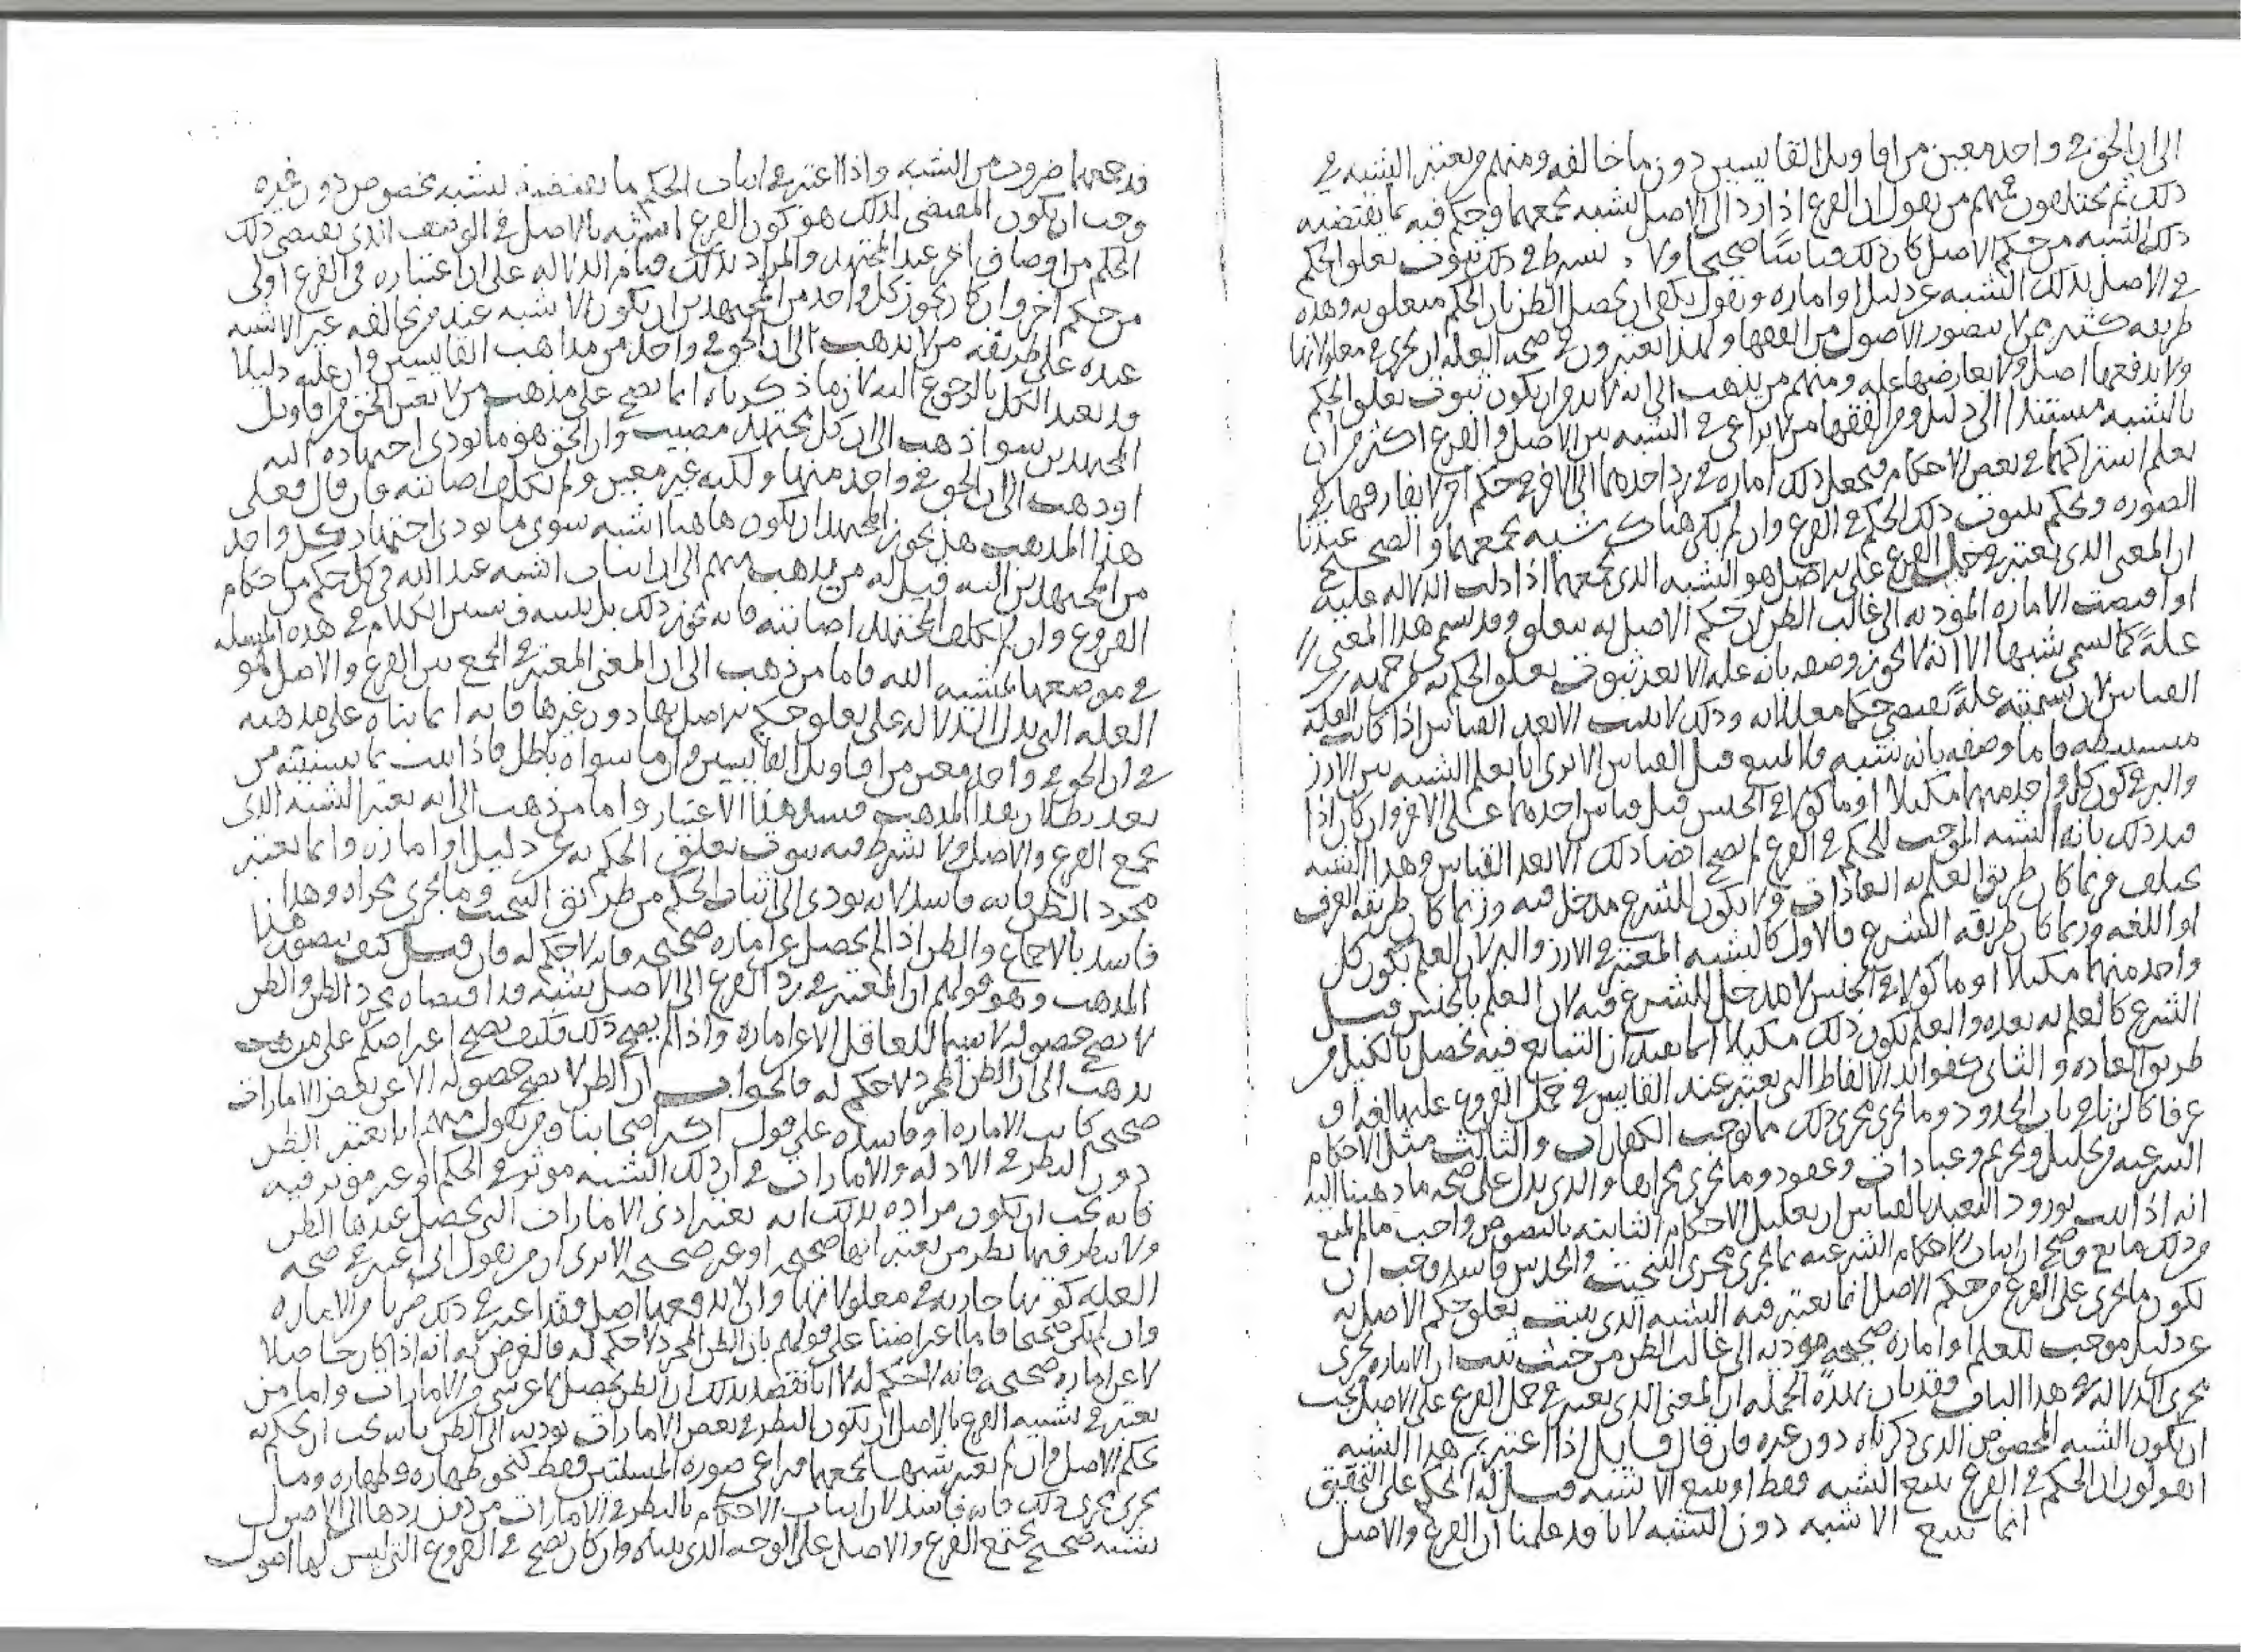 الى ان الحق في واحد معين من اقاويل القايسين دون ما خالفه ومنهم من يعتبر الشبه في
ذلك ثم يختلفون فمنهم من يقول ان الفرع اذا رد الى الاصل لشبه يجمعهما وحكم فيه بما يقتضيه
ذلك الشبه من حكم الاصل كان ذلك قياسا صحيحا ولا يشرط في ذلك ثبوت تعلق الحكم
في الاصل بذلك الشبه عن دليل او اماره ونقول يكفي ان يحصل الظن بان الحكم متعلق به وهذه
طريقه كثير ممن لا يتصور الاصول من الفقها ولهذا يعتبرون في صحه العله ان تجري في معلولاتها
ولا يدفعها اصل ولا يعارضها عله ومنهم من يذهب الى انه لا بد من ان يكون ثبوت تعلق الحكم
بالشبه مستندا الى دليل ومن الفقها من لا يراعي في الشبه بين الاصل والفرع اكثر من ان
يعلم اشتراكهما في بعض الاحكام فيجعل ذلك اماره في رد احدهما الى الاخر في حكم اخر لا يفارقها في
الصوره ويحكم بثبوت ذلك الحكم في الفرع وان لم يكن هناك شبه يجمعهما والصحيح عندنا
ان المعنى الذي يعتبر في حمل الفرع على الاصل هو الشبه الذي يجمعهما اذا دلت الدلاله عليه
او اقتضت الاماره المؤديه الى غالب الظن ان حكم الاصل به يتعلق وقد يسمى هذا المعنى
علةً كما يسمى شبها الا انه لا يجوز وصفه بانه عله الا بعد ثبوت تعلق الحكم به من جهه
القياس لان تسميته علةً يقتضي حكما معللا به وذلك لا يثبت الا بعد القياس اذا كانت العله
مستنبطه فاما وصفه بانه شبه فلا يمتنع قبل القياس الا ترى انا نعلم الشبه بين الارز
والبر في كون كل واحد منهما مكيلا او ماكولا في الجنس قبل قياس احدهما على الاخر وان كان اذا
قيد ذلك بانه الشبه الموجب للحكم في الفرع لم يصح ايضا ذلك الا بعد القياس وهذا الشبه
يختلف فربما كان طريق العلم به العادات ولا يكون للشرع مدخل فيه وربما كان طريقه العرف
او اللغه وربما كان طريقه الشرع فالاول كالشبه المعتبر في الارز والبر لان العلم بكون كل
واحد منهما مكيلا او ماكولا في الجنس لا مدخل للشرع فيه لان العلم بالجنس قبل
الشرع كالعلم به بعده والعلم بكون ذلك مكيلا انما يفيد ان التبايع فيه يحصل بالكيل من
طريق العاده والثاني كفوائد الالفاظ التي يعتبر عند القايس في حمل الفروع عليها لغه او
عرفا كالزنا في باب الحدود وما يجري مجرى ذلك مما يوجب الكفارات والثالث مثل الاحكام
الشرعيه من تحليل وتحريم وعبادات وعقود وما يجري مجراها والذي يدل على صحه ما ذهبنا اليه
انه اذا ثبت بورود التعبد بالقياس ان تعليل الاحكام الثابته بالنصوص واجب ما لم يمنع
من ذلك مانع وصح ان اثبات الاحكام الشرعيه بما يجري مجرى التبخيت والحدس فاسد وجب ان
يكون ما يجري على الفرع من حكم الاصل انما يعتبر فيه الشبه الذي يثبت تعلق حكم الاصل به
عن دليل موجب للعلم او اماره صحيحه مؤديه الى غالب الظن من حيث ثبت ان الاماره تجري
مجرى الدلاله في هذا الباب فقد بان بهذه الجمله ان المعنى الذي يعتبر في حمل الفرع على الاصل يجب
ان يكون الشبه المخصوص الذي ذكرناه دون غيره فان قال قايل اذا اعتبرتم هذا الشبه
اتقولون ان الحكم في الفرع يتبع الشبه فقط او يتبع الاشبه قيل له الحكم على التحقيق
انما يتبع الاشبه دون الشبه لانا قد علمنا ان الفرع والاصل
قد يجمعهما ضروب من الشبه واذا اعتبر في اثبات الحكم ما يقتضيه لشبه مخصوص دون غيره
وجب ان يكون المقتضي لذلك هو كون الفرع اشبه بالاصل في الوصف الذي يقتضي ذلك
الحكم من اوصاف اخر عند المجتهد والمراد بذلك قيام الدلاله على ان اعتباره في الفرع اولى
من حكم اخر وان كان يجوز كل واحد من المجتهدين ان يكون الاشبه عند من يخالفه غير الاشبه
عنده على طريقه من لا يذهب الى ان الحق في واحد من مذاهب القايسين وان عليه دليلا
قد تعبد الكل بالرجوع اليه لان ما ذكرناه انما يصح على مذهب من لا يعين الحق من اقاويل
المجتهدين سوا ذهب الى ان كل مجتهد مصيب وان الحق هو ما يودي اجتهاده اليه
او ذهب الى ان الحق في واحد منها ولكنه غير معين ولم يكلف اصابته فان قال فعلى
هذا المذهب هل يجوز المجتهد ان يكون هاهنا اشبه سوى ما يودي اجتهاد كل واحد
من المجتهدين اليه قيل له من يذهب منهم الى ان اثبات اشبه عند الله في كل حكم من احكام
الفروع وان لم يكلف المجتهد اصابته فانه يجوز ذلك بل يثبته وسنبين الكلام في هذه المسئله
في موضعها بمشيه الله فاما من ذهب الى ان المعنى المعتبر في الجمع بين الفرع والاصل هو
العله التي يدل الدلاله على تعلق حكم الاصل بها دون غيرها فانه انما بناه على مذهبه
في ان الحق في واحد معين من اقاويل القايسين وان ما سواه باطل فاذا ثبت بما سنبينه من
بعد بطلان هذا المذهب فسد هذا الاعتبار واما من ذهب الى انه يعتبر الشبه الذي
يجمع الفرع والاصل ولا يشرط فيه ثبوت تعلق الحكم به عن دليل او اماره وانما يعتبر
مجرد الظن فانه فاسد لانه يودي الى اثبات الحكم من طرائق التبخيت وما يجري مجراه وهذا
فاسد بالاجماع والظن اذا لم يحصل عن اماره صحيحه فانه لا حكم له فان قيل كيف يتصور هذا
المذهب وهو قولهم ان المعتبر في رد الفرع الى الاصل بشبه قد اقتضاه مجرد الظن والظن
لا يصح حصوله لاسيما للعاقل الا عن اماره واذا لم يصح ذلك فكيف يصح اعتراضكم على من
يذهب الى ان الظن المجرد لا حكم له فالجواب ان الظن لا يصح حصوله الا عن بعض الامارات
صحيحه كانت الاماره او فاسده على قول اكثر اصحابنا ومن يقول منهم انا نعتبر الظن
دون النظر في الادله والامارات في ان ذلك الشبه موثر في الحكم او غير موثر فيه
فانه يجب ان يكون مراده بذلك انه يعتبر ادنى الامارات التي يحصل عندها الظن
ولا ينظر فيها نظر من يعتبر انها صحيحه او غير صحيحه الا ترى ان من يقول اني اعتبر في صحه
العله كونها جاريه في معلولاتها وان لا يدفعها اصل فقد اعتبر في ذلك ضربا من الاماره
وان لم يكن صحيحا فاما اعتراضنا على قولهم بان الظن المجرد لا حكم له فالغرض به انه اذا كان حاصلا
لا عن اماره صحيحه فانه لا حكم له لا انا نقصد بذلك ان الظن يحصل لا عن شي من الامارات واما من
يعتبر في تشبيه الفرع بالاصل ان يكون النظر في بعض الامارات يوديه الى الظن بانه يجب ان يحكم به
بحكم الاصل وان لم يعتبر شبها يجمعهما من اعى صوره المسئلتين فقط كنحو طهاره وطهاره وما
يجري مجرى ذلك فانه فاسد لان اثبات الاحكام بالنظر في الامارات من دون ردها الى الاصول
بشبه صحيح يجمع الفرع والاصل على الوجه الذي بيناه وان كان يصح في الفروع التي ليس لها اصول